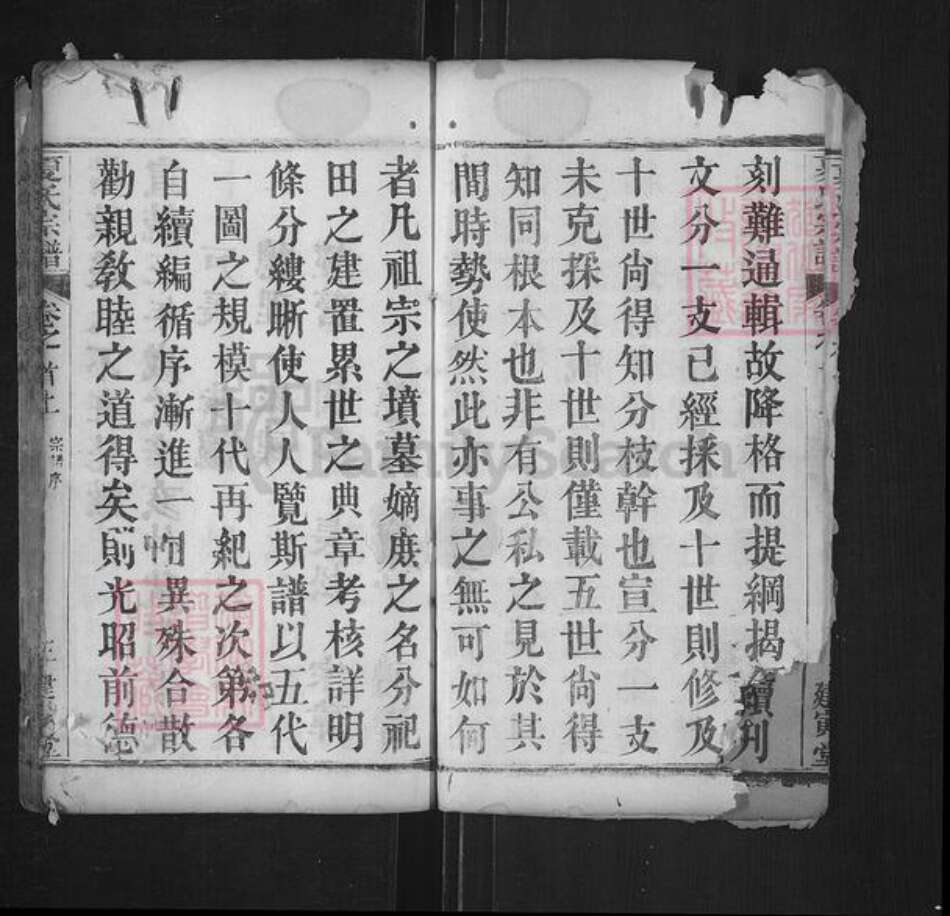 夏氏宗譜
建寅堂
刻難過輯故降格而提綱揭
續刊
文分一支已經採及十世則修及
十世尙得知分枝幹也宣分一支
未克採及十世則僅載五世尙得
知同根本也非有公私之見於其
間時勢使然此亦事之無可如何
者凡祖宗之墳墓嫡庶之名分祀
田之建置累世之典章考核詳明
條分縷晰使人人覽斯譜以五代
一圖之規模十代再紀之次第各
自續編循序漸進一 異殊合散
勸親敎睦之道得矣則光昭前德
夏氏宗譜 卷之首上 宗譜序
FamilySearch